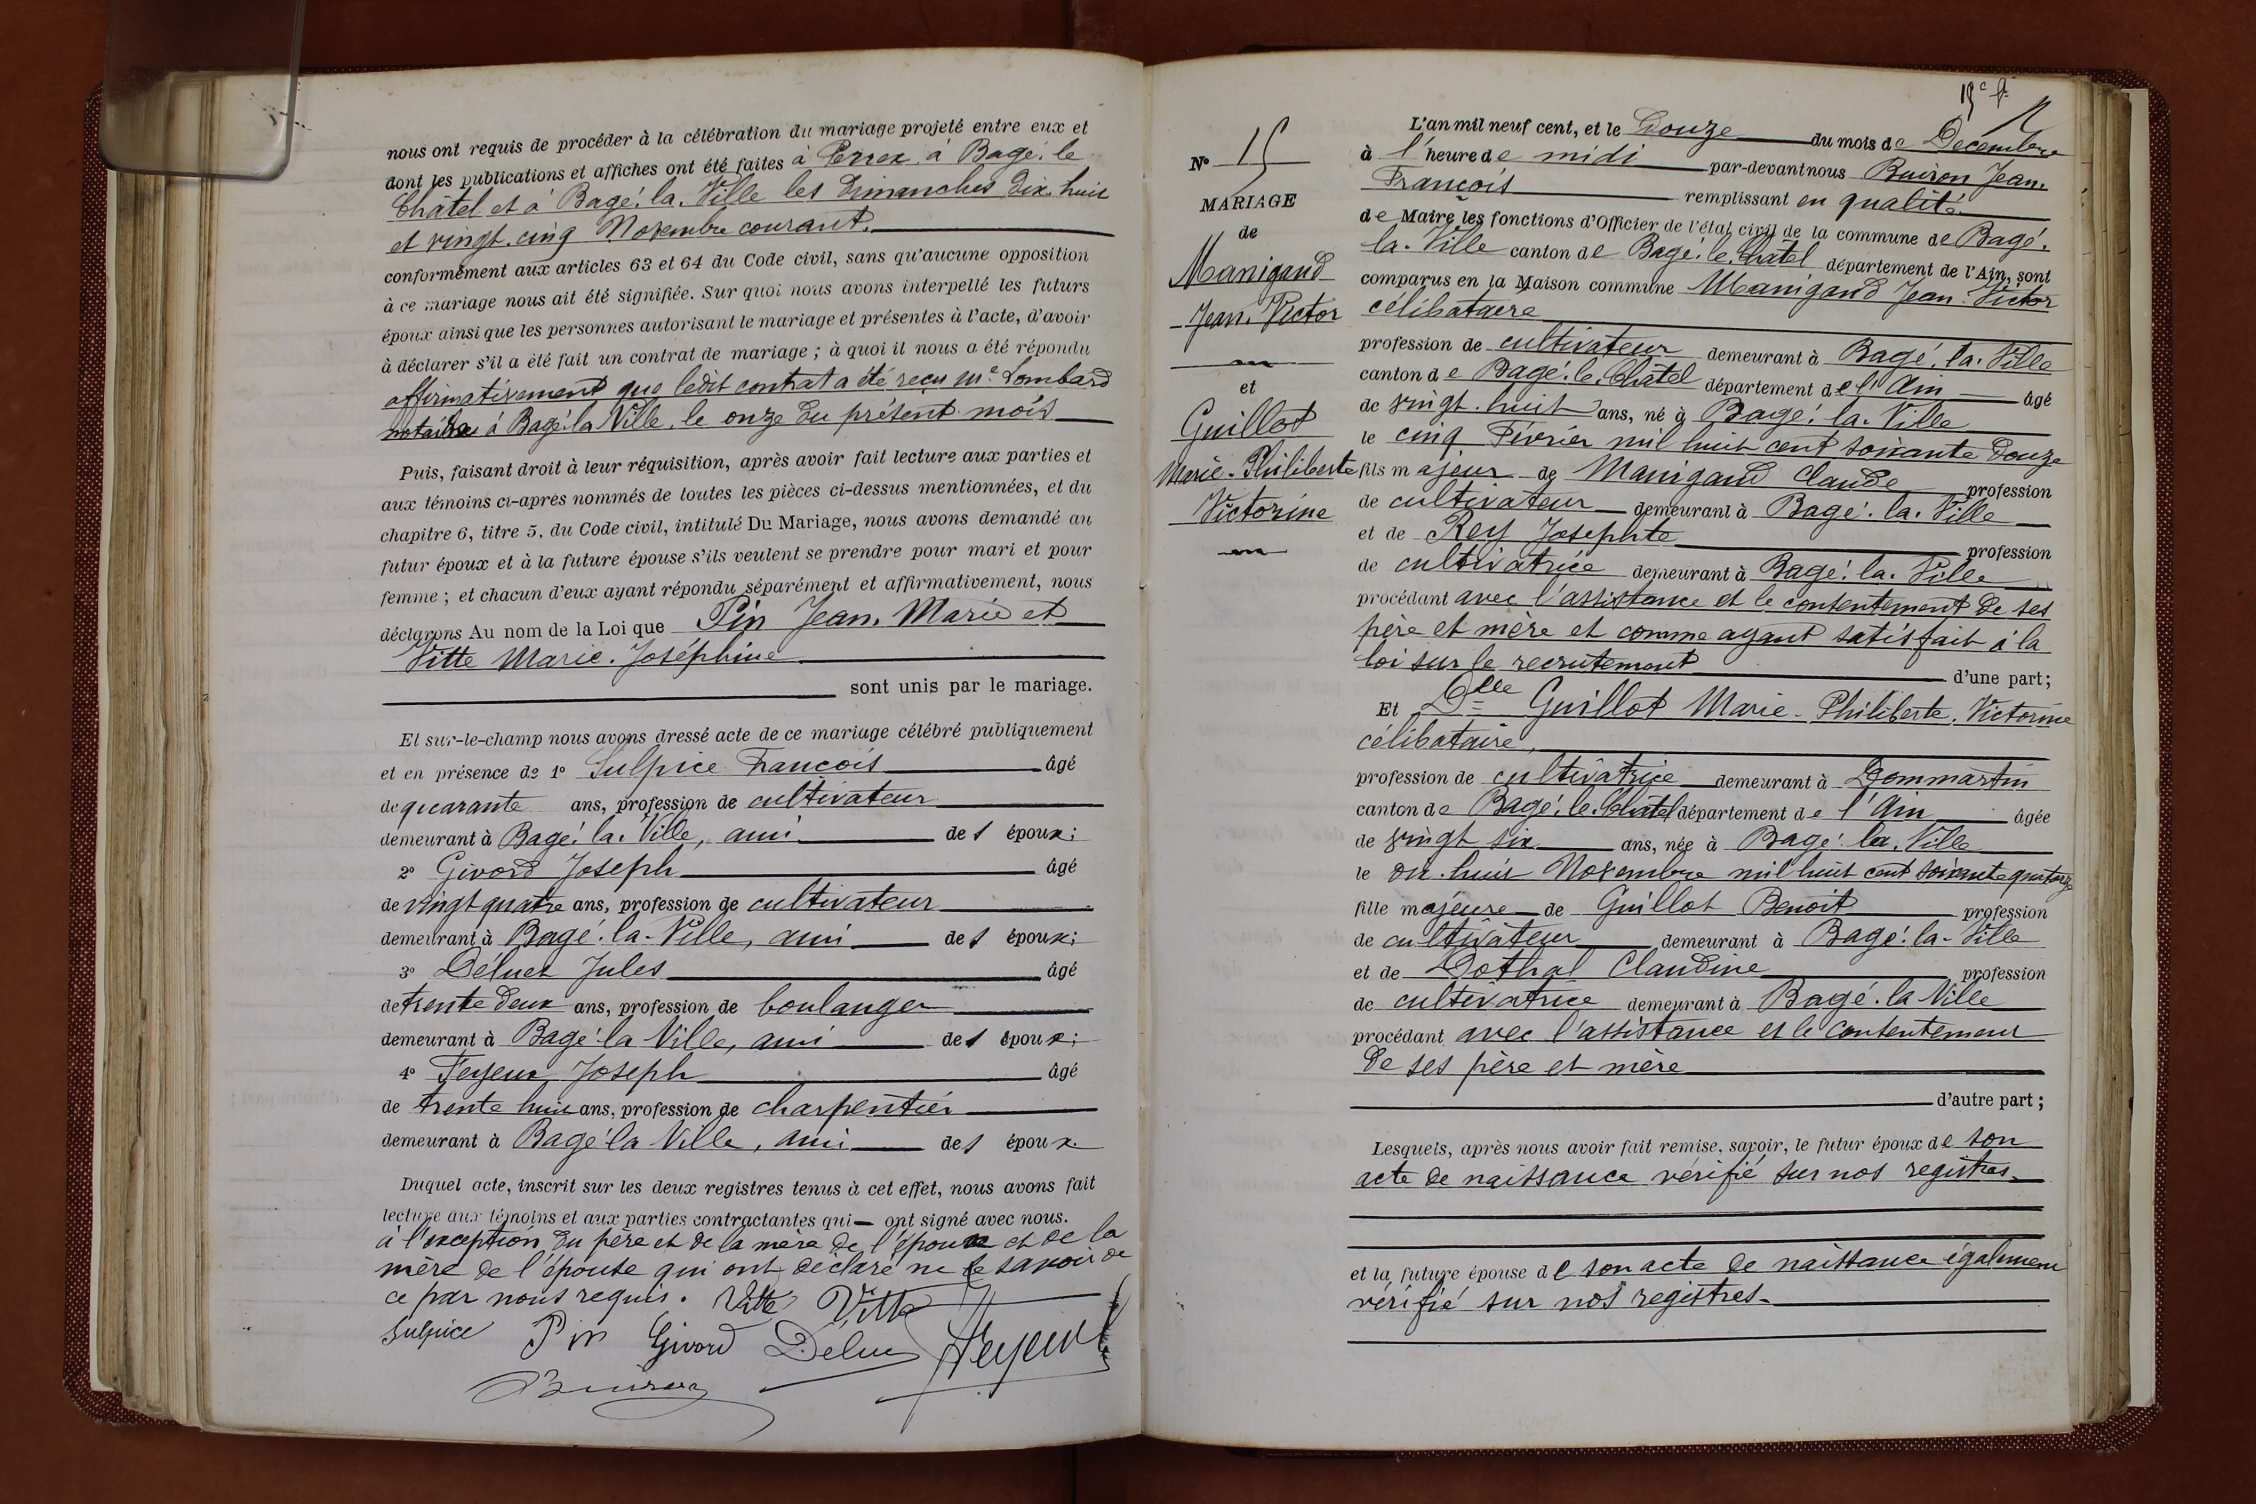 nous ont requis de procéder à la célébration du mariage projeté entre eux et
dont les publications et affiches ont été faites à Perrex à Bagé-le-
Châtel et à Bagé-la-Ville les Dimanches dix-huit
et vingt-cinq Novembre courant.
conformément aux articles 63 et 64 du Code civil, sans qu'aucune opposition
à ce mariage nous ait été signifiée. Sur quoi nous avons interpellé les futurs
époux ainsi que les personnes autorisant le mariage et présentes à l'acte, d'avoir
à déclarer s'il a été fait un contrat de mariage ; à quoi il nous a été répondu
affirmativement que ledit contrat a été reçu Me Lombard
notaire à Bagé-la-Ville, le onze du présent mois
Puis, faisant droit à leur réquisition, après avoir fait lecture aux parties et
aux témoins ci-après nommés de toutes les pièces ci-dessus mentionnées, et du
chapitre 6, titre 5, du Code civil, intitulé Du Mariage, nous avons demandé au
futur époux et à la future épouse s'ils veulent se prendre pour mari et pour
femme ; et chacun d'eux ayant répondu séparément et affirmativement, nous
déclarons Au nom de la Loi que Pin Jean-Marie et
Vitte Marie-Joséphine
sont unis par le mariage.
Et sur-le-champ nous avons dressé acte de ce mariage célébré publiquement
et en présence de 1º Sulpice François âgé
de quarante ans, profession de cultivateur
demeurant à Bagé-la-Ville, ami des époux ;
2º Givord Joseph âgé
de vingt quatre ans, profession de cultivateur
demeurant à Bagé-la-Ville, ami des époux ;
3º Déluer Jules âgé
de trente deux ans, profession de boulanger
demeurant à Bagé-la-Ville, ami des époux ;
4º Feyeux Joseph âgé
de trente huit ans, profession de charpentier
demeurant à Bagé-la-Ville, ami des époux.
Duquel acte, inscrit sur les deux registres tenus à cet effet, nous avons fait
lecture aux témoins et aux parties contractantes qui ont signé avec nous.
à l'exception du père et de la mère de l'époux et de la
mère de l'épouse qui ont déclaré ne le savoir de
ce par nous requis. Vitte Vitte
Sulpice Pin Givord Feyeux
Buiron
15e f.
Nº 15
MARIAGE
de
Manigand
Jean-Victor
et
Guillot
Marie-Philiberte
Victorine
L'an mil neuf cent, et le Douze du mois de Décembre
à l'heure de midi par-devant nous Buiron Jean-
François remplissant en qualité
de Maire les fonctions d'Officier de l'état civil de la commune de Bagé-
la-Ville canton de Bagé-le-Châtel département de l'Ain, sont
comparus en la Maison commune Manigand Jean-Victor
célibataire
profession de cultivateur demeurant à Bagé-la-Ville
canton de Bagé-le-Châtel département de l'Ain âgé
de vingt-huit ans, né à Bagé-la-Ville
le cinq Février mil huit cent soixante douze
fils majeur de Manigand Claude profession
de cultivateur demeurant à Bagé-la-Ville
et de Rey Josephte profession
de cultivatrice demeurant à Bagé-la-Ville
procédant avec l'assistance et le consentement de ses
père et mère et comme ayant satisfait à la
loi sur le recrutement d'une part ;
Et Dlle Guillot Marie-Philiberte-Victorine
célibataire,
profession de cultivatrice demeurant à Dommartin
canton de Bagé-le-Châtel département de l'Ain âgée
de vingt six ans, née à Bagé-la-Ville
le dix-huit Novembre mil huit cent soixante quatorze
fille majeure de Guillot Benoit profession
de cultivateur demeurant à Bagé-la-Ville
et de Dothal Claudine profession
de cultivatrice demeurant à Bagé-la-Ville
procédant avec l'assistance et le consentement
de ses père et mère
d'autre part ;
Lesquels, après nous avoir fait remise, savoir, le futur époux de son
acte de naissance vérifié sur nos registres
et la future épouse de son acte de naissance également
vérifié sur nos registres